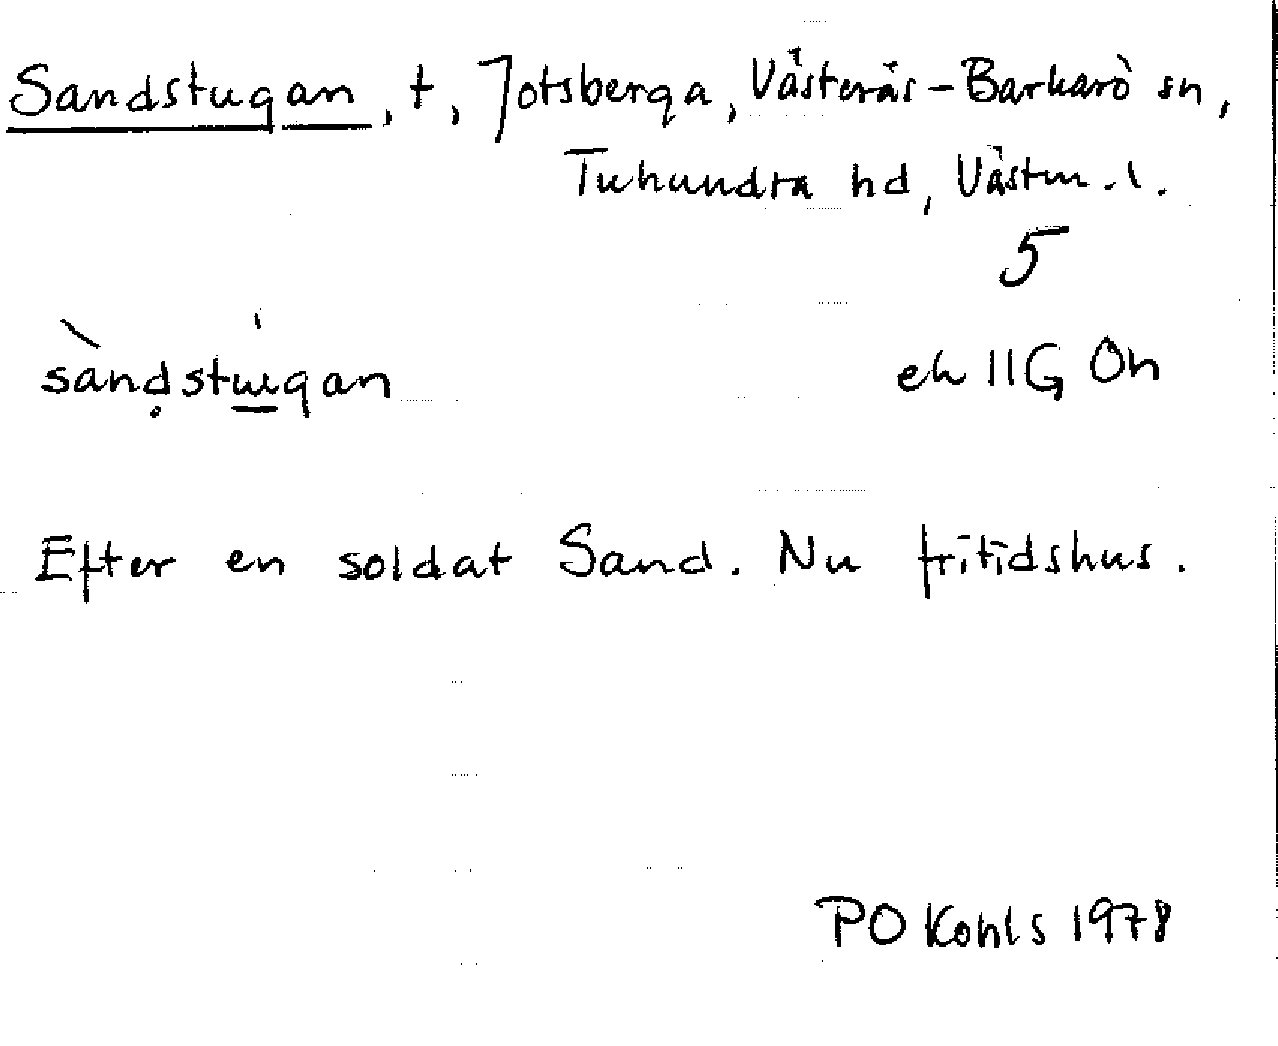 Sandstugan, t, Jotsberga, Västerås-Barkarö sn,
Tuhundra hd, Västm. l.
5
sàndstugan ek 11G Ön
Efter en soldat Sand. Nu fritidshus.
PO Kohls 1978